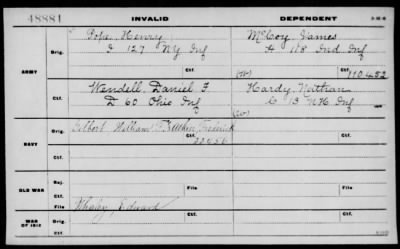 48881 INVALID DEPENDENT
Pope, Henry McCoy, James
Orig. I 127 NY Inf A 118 Ind Inf
ARMY (W) Ctf. 110,452
Wendell, Daniel F Hardy, Nathan
Ctf. D 60 Ohio Inf C 13 NH Inf
Gilbert William F Frederick
Orig. Ctf.
NAVY 22456
Ctf.
Surv.
OLD WAR File File
Ctf.
Whaley, Edward
WAR OF 1812 Orig. Ctf.
Ctf.